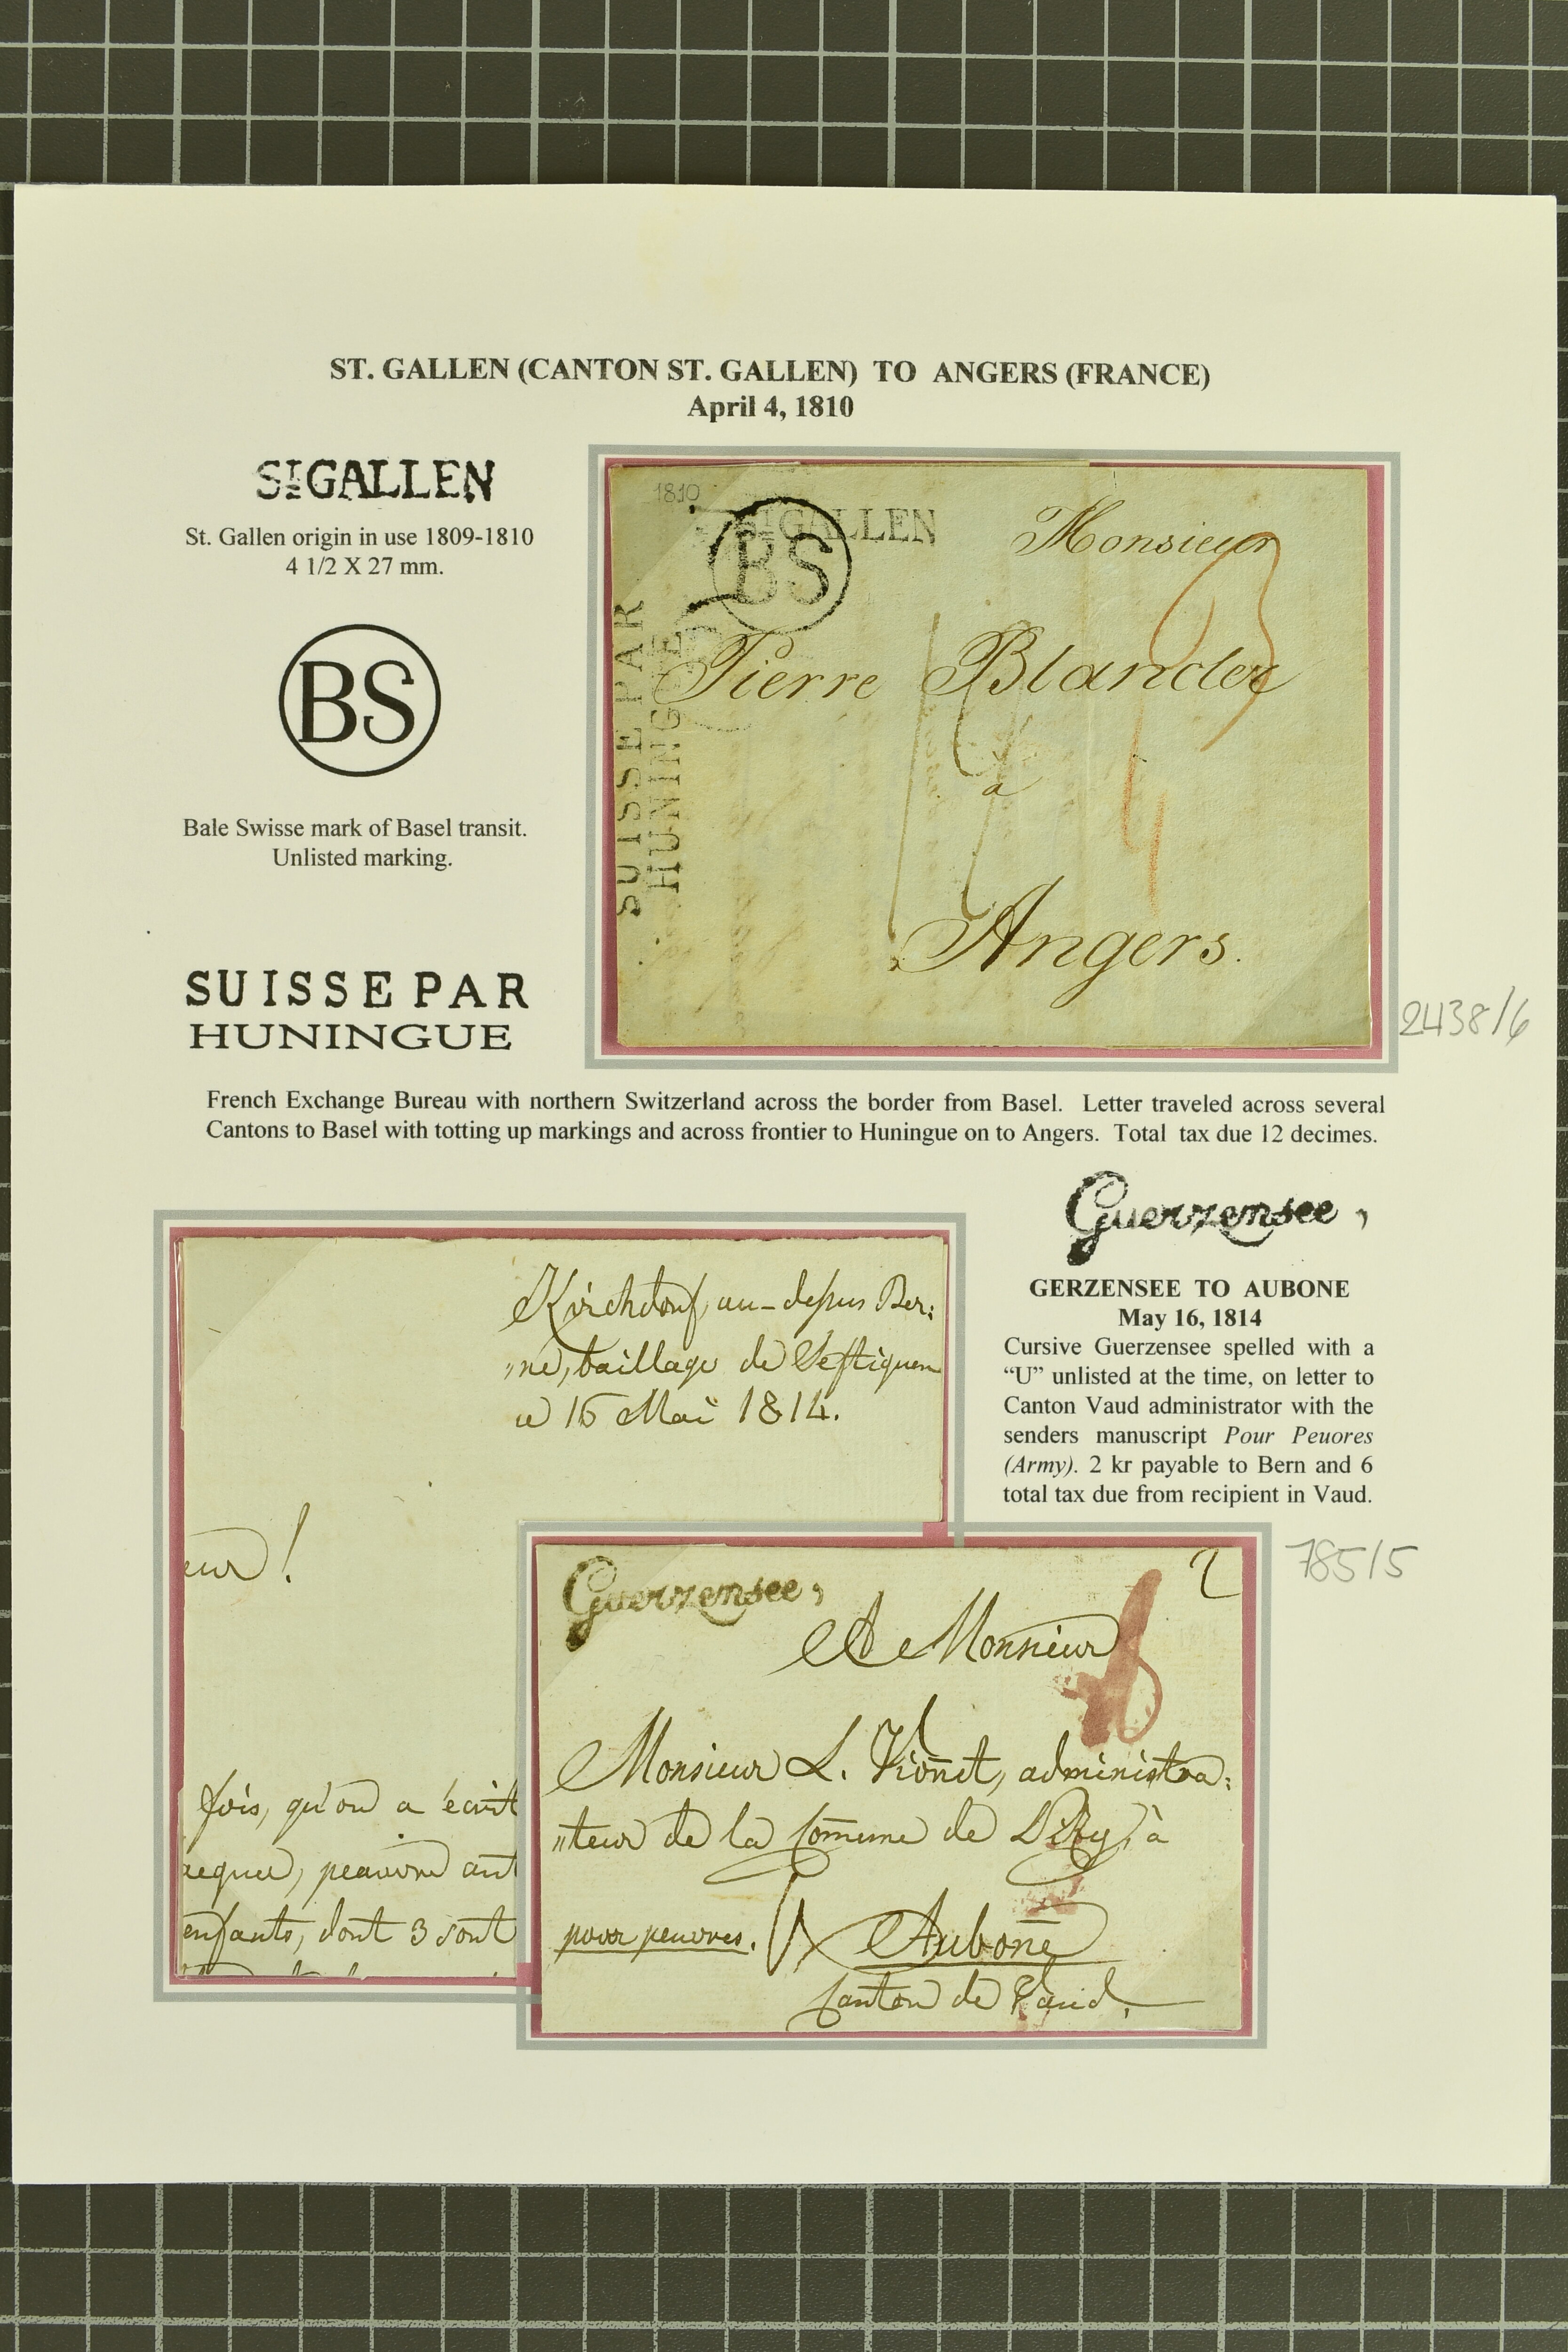 ST. GALLEN (CANTON ST. GALLEN) TO ANGERS (FRANCE)
April 4, 1810
ST GALLEN
St. Gallen origin in use 1809-1810
4 1/2 X 27 mm.
BS
Bale Swisse mark of Basel transit.
Unlisted marking.
SUISSE PAR
HUNINGUE
1810
ST GALLEN
BS
SUISSE PAR
HUNINGUE
Monsieur
Pierre Blancler
a
Angers.
2438/6
French Exchange Bureau with northern Switzerland across the border from Basel. Letter traveled across several
Cantons to Basel with totting up markings and across frontier to Huningue on to Angers. Total tax due 12 decimes.
Guerzensee,
GERZENSEE TO AUBONE
May 16, 1814
Cursive Guerzensee spelled with a
“U” unlisted at the time, on letter to
Canton Vaud administrator with the
senders manuscript Pour Peuores
(Army). 2 kr payable to Bern and 6
total tax due from recipient in Vaud.
Kirchdorf, au-depus Ber:
„ne, baillage de Seftiguen
16 Mai 1814.
eur!
fois, qu'on a écrit
peauvre
enfants, dont 3 sont
785/5
Guerzensee,
2
A Monsieur
Monsieur L. Vionet, administra:
„teur de la Comune de à
pour peuvres. Aubone
Canton de Vaud,